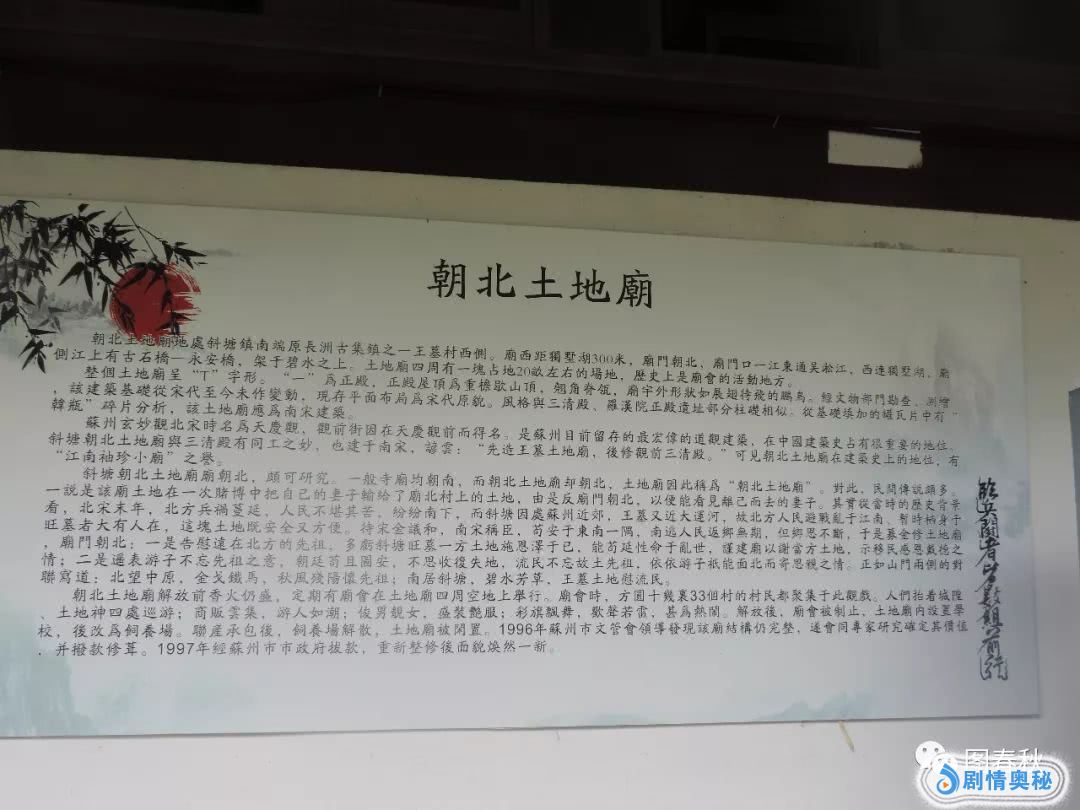 朝北土地廟
朝北土地廟地處斜塘鎮南端原長洲古集鎮之一王墓村西側。廟西距獨墅湖300米，廟門朝北，廟門口一江東通吴淞江，西連獨墅湖，廟
側江上有古石橋—永安橋，架于碧水之上。土地廟四周有一塊占地20畝左右的場地，歷史上是廟會的活動地方。
整個土地廟呈“T”字形。“一”爲正殿，正殿屋頂爲重檐歇山頂，翹角脊瓴，廟宇外形狀如展翅待飛的鵬鳥。經文物部門勘查、測繪
，該建築基礎從宋代至今未作變動，現存平面布局爲宋代原貌。風格與三清殿、羅漢院正殿遺址部分柱礎相似。從基礎填加的磚瓦片中有“
韓瓶”碎片分析，該土地廟應爲南宋建築。
蘇州玄妙觀北宋時名爲天慶觀，觀前街因在天慶觀前而得名。是蘇州目前留存的最宏偉的道觀建築，在中國建築史占有很重要的地位。
斜塘朝北土地廟與三清殿有同工之妙，也建于南宋，諺雲：“先造王墓土地廟，後修觀前三清殿。”可見朝北土地廟在建築史上的地位，有
“江南袖珍小廟”之譽。
斜塘朝北土地廟廟朝北，頗可研究。一般寺廟均朝南，而朝北土地廟却朝北，土地廟因此稱爲“朝北土地廟”。對此，民間傳説頗多。
一説是該廟土地在一次賭博中把自己的妻子輸給了廟北村上的土地，由是反廟門朝北，以便能看見離己而去的妻子。其實從當時的歷史背景
看，北宋末年，北方兵禍蔓延，人民不堪其苦，紛紛南下，而斜塘因處蘇州近郊，王墓又近大運河，故北方人民避戰亂于江南、暫時栖身于
旺墓者大有人在，這塊土地既安全又方便。待宋金議和，南宋稱臣，苟安于東南一隅，南遷人民返鄉無期，但鄉思不斷，于是募金修土地廟
，廟門朝北：一是告慰遠在北方的先祖，多虧斜塘旺墓一方土地施恩澤于己，能苟延性命于亂世，謹建廟以謝當方土地，示移民感恩戴德之
情；二是遥表游子不忘先祖之意，朝廷苟且圖安，不思收復失地，流民不忘故土先祖，依依游子衹能面北而寄思親之情。正如山門兩側的對
聯寫道：北望中原，金戈鐵馬，秋風殘陽懷先祖；南居斜塘，碧水芳草，王墓土地慰流民。
朝北土地廟解放前香火仍盛，定期有廟會在土地廟四周空地上舉行。廟會時，方圓十幾裏33個村的村民都聚集于此觀戲。人們抬着城隍
、土地神四處巡游；商販雲集，游人如潮；俊男靚女，盛裝艷服；彩旗飄舞，歡聲若雷，甚爲熱鬧。解放後，廟會被制止，土地廟内設置學
校，後改爲飼養場。聯産承包後，飼養場解散，土地廟被閑置。1996年蘇州市文管會領導發現該廟結構仍完整，遂會同專家研究確定其價值
，并撥款修葺。1997年經蘇州市市政府拔款，重新整修後面貌焕然一新。
图春秋
剧情奥秘